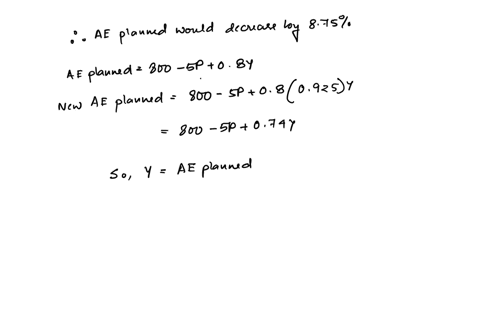 ∴ AE planned would decrease by 8.75%
AE planned = 800 - 5P + 0.8Y
New AE planned = 800 - 5P + 0.8(0.925)Y
= 800 - 5P + 0.74Y
So, Y = AE planned